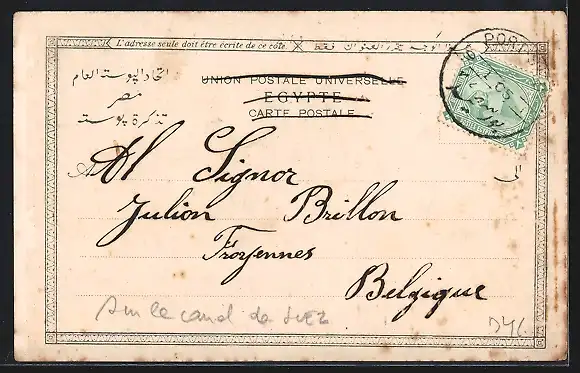 L'adresse seule doit être écrite de ce côté.
اتحاد البوستة العام
مصر
تذكرة بوستة
UNION POSTALE UNIVERSELLE
EGYPTE
CARTE POSTALE
PORT
Al Signor
Julion Brillon
Froyennes
Belgique
Sur le canal de Suez